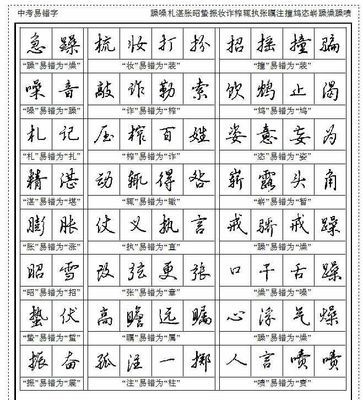 中考易错字 躁噪札湛胀昭蛰振妆诈榨辄执张瞩注撞鸩恣崭躁燥躁啧
急躁 梳妆打扮 招摇撞骗
"躁"易错为"燥" "妆"易错为"装" "撞"易错为"装"
噪音 敲诈勒索 饮鸩止渴
"噪"易错为"燥" "诈"易错为"榨"
札记 压榨百姓 恣意妄为
"札"易错为"扎" "榨"易错为"诈" "恣"易错为"姿"
精湛 动辄得咎 崭露头角
"崭"易错为"暂"
膨胀 仗义执言 戒骄戒躁
"胀"易错为"涨" "执"易错为"直" "躁"易错为"燥"
昭雪 改弦更张 口干舌躁
"昭"易错为"招" "张"易错为"章"
蛰伏 高瞻远瞩 心浮气燥
"蛰"易错为"蜇" "瞩"易错为"属"
振奋 孤注一掷 人言啧啧
"振"易错为"震" "注"易错为"柱" "啧"易错为"责"